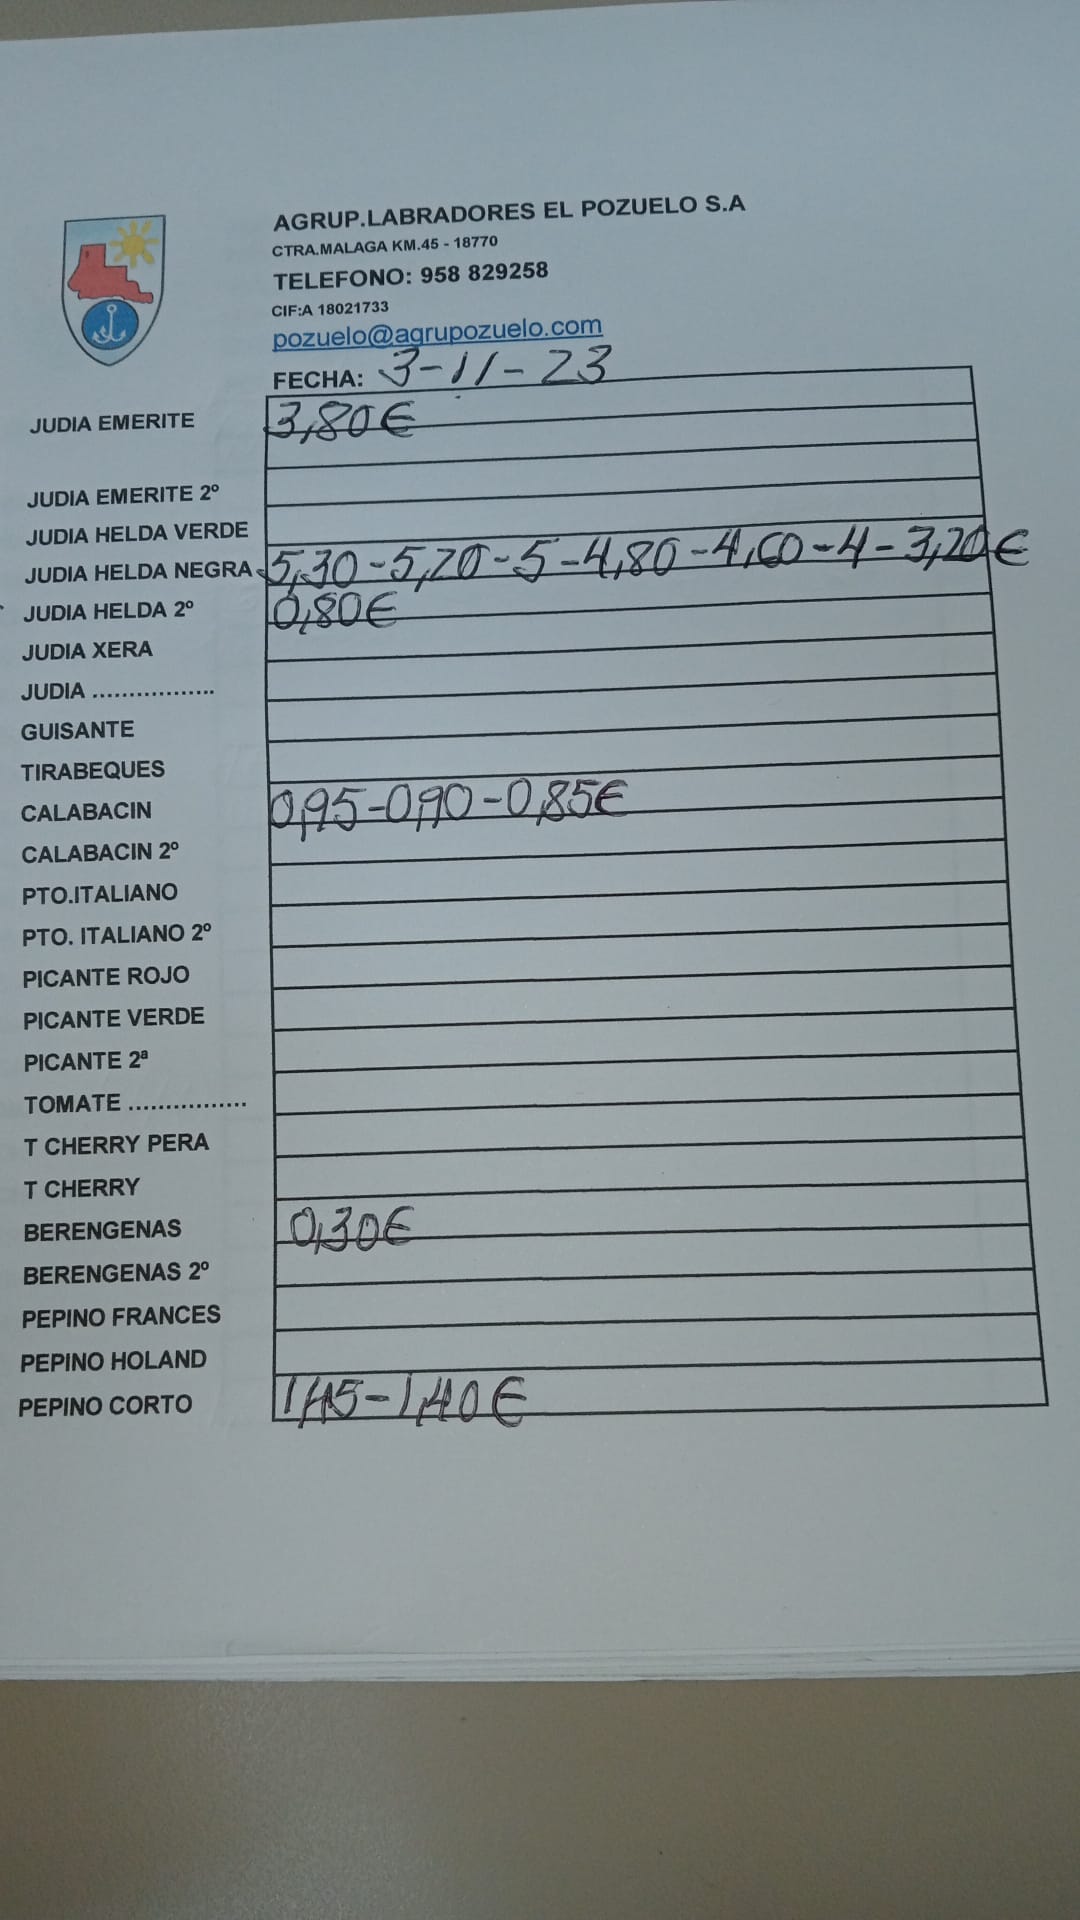 AGRUP.LABRADORES EL POZUELO S.A
CTRA.MALAGA KM.45 - 18770
TELEFONO: 958 829258
CIF:A 18021733
pozuelo@agrupozuelo.com
FECHA: 3-11-23
JUDIA EMERITE 3,80€
JUDIA EMERITE 2º
JUDIA HELDA VERDE
JUDIA HELDA NEGRA 5,30-5,20-5-4,80-4,60-4-3,20€
JUDIA HELDA 2º 0,80€
JUDIA XERA
JUDIA .................
GUISANTE
TIRABEQUES
CALABACIN 0,95-0,90-0,85€
CALABACIN 2º
PTO.ITALIANO
PTO. ITALIANO 2º
PICANTE ROJO
PICANTE VERDE
PICANTE 2ª
TOMATE ................
T CHERRY PERA
T CHERRY
BERENGENAS 0,30€
BERENGENAS 2º
PEPINO FRANCES
PEPINO HOLAND
PEPINO CORTO 1,45-1,40€